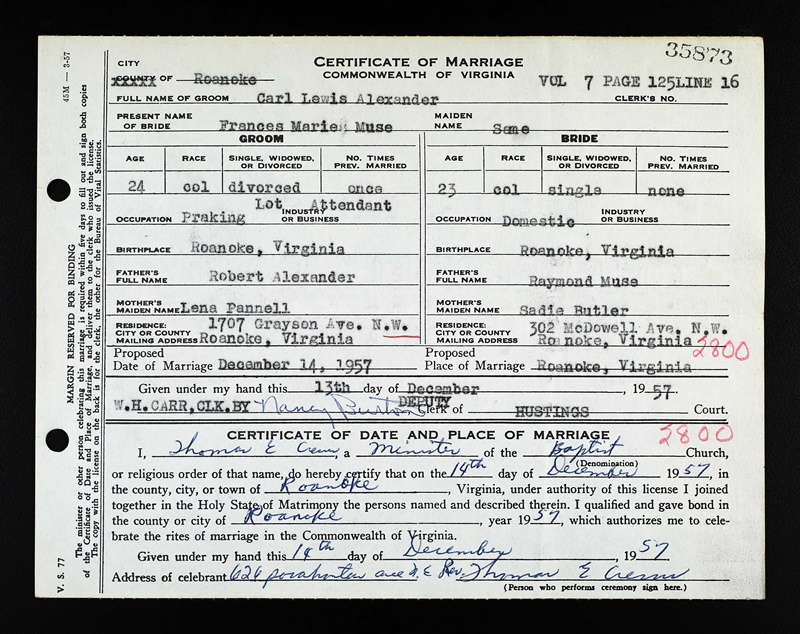 35873
CITY
XXXXX OF Roanoke
CERTIFICATE OF MARRIAGE
COMMONWEALTH OF VIRGINIA
VOL 7 PAGE 125LINE 16
FULL NAME OF GROOM Carl Lewis Alexander CLERK'S NO.
PRESENT NAME OF BRIDE Frances Marie Muse MAIDEN NAME Same
GROOM BRIDE
AGE RACE SINGLE, WIDOWED, OR DIVORCED NO. TIMES PREV. MARRIED AGE RACE SINGLE, WIDOWED, OR DIVORCED NO. TIMES PREV. MARRIED
24 col divorced once 23 col single none
Lot Attendant
OCCUPATION Praking INDUSTRY OR BUSINESS OCCUPATION Domestic INDUSTRY OR BUSINESS
BIRTHPLACE Roanoke, Virginia BIRTHPLACE Roanoke, Virginia
FATHER'S FULL NAME Robert Alexander FATHER'S FULL NAME Raymond Muse
MOTHER'S MAIDEN NAME Lena Pannell MOTHER'S MAIDEN NAME Sadie Butler
RESIDENCE: 1707 Grayson Ave. N.W. RESIDENCE: 302 McDowell Ave. N.W.
CITY OR COUNTY CITY OR COUNTY
MAILING ADDRESS Roanoke, Virginia MAILING ADDRESS Roanoke, Virginia 2800
Proposed Proposed
Date of Marriage December 14, 1957 Place of Marriage Roanoke, Virginia
Given under my hand this 13th day of December, 1957.
W.H. CARR, CLK. BY Nancy Burton DEPUTY Clerk of HUSTINGS Court.
CERTIFICATE OF DATE AND PLACE OF MARRIAGE 2800
I, Thomas E a Minister of the Baptist Church,
(Denomination)
or religious order of that name, do hereby certify that on the 14th day of December 1957, in
the county, city, or town of Roanoke, Virginia, under authority of this license I joined
together in the Holy State of Matrimony the persons named and described therein. I qualified and gave bond in
the county or city of Roanoke, year 1957, which authorizes me to cele-
brate the rites of marriage in the Commonwealth of Virginia.
Given under my hand this 14th day of December, 1957
Address of celebrant 626 pocahontas ave N. E Rev. Thomas E
(Person who performs ceremony sign here.)
45M — 3-57
V. S. 77
MARGIN RESERVED FOR BINDING
The minister or other person celebrating this marriage is required within five days to fill out and sign both copies
of the Certificate of Date and Place of Marriage, and deliver them to the clerk who issued the license.
The copy with the license on the back is for the clerk, the other for the Bureau of Vital Statistics.